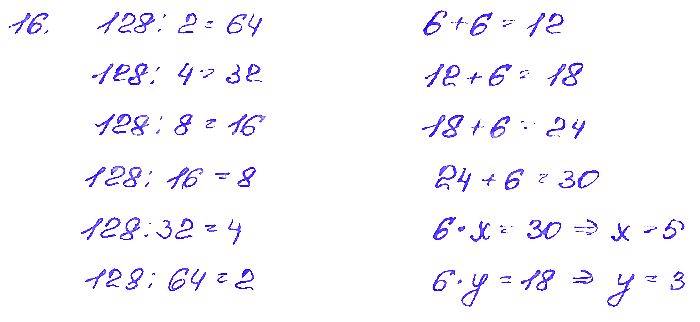 16. 128 : 2 = 64
128 : 4 = 32
128 : 8 = 16
128 : 16 = 8
128 : 32 = 4
128 : 64 = 2
6 + 6 = 12
12 + 6 = 18
18 + 6 = 24
24 + 6 = 30
6 · x = 30 ⇒ x = 5
6 · y = 18 ⇒ y = 3